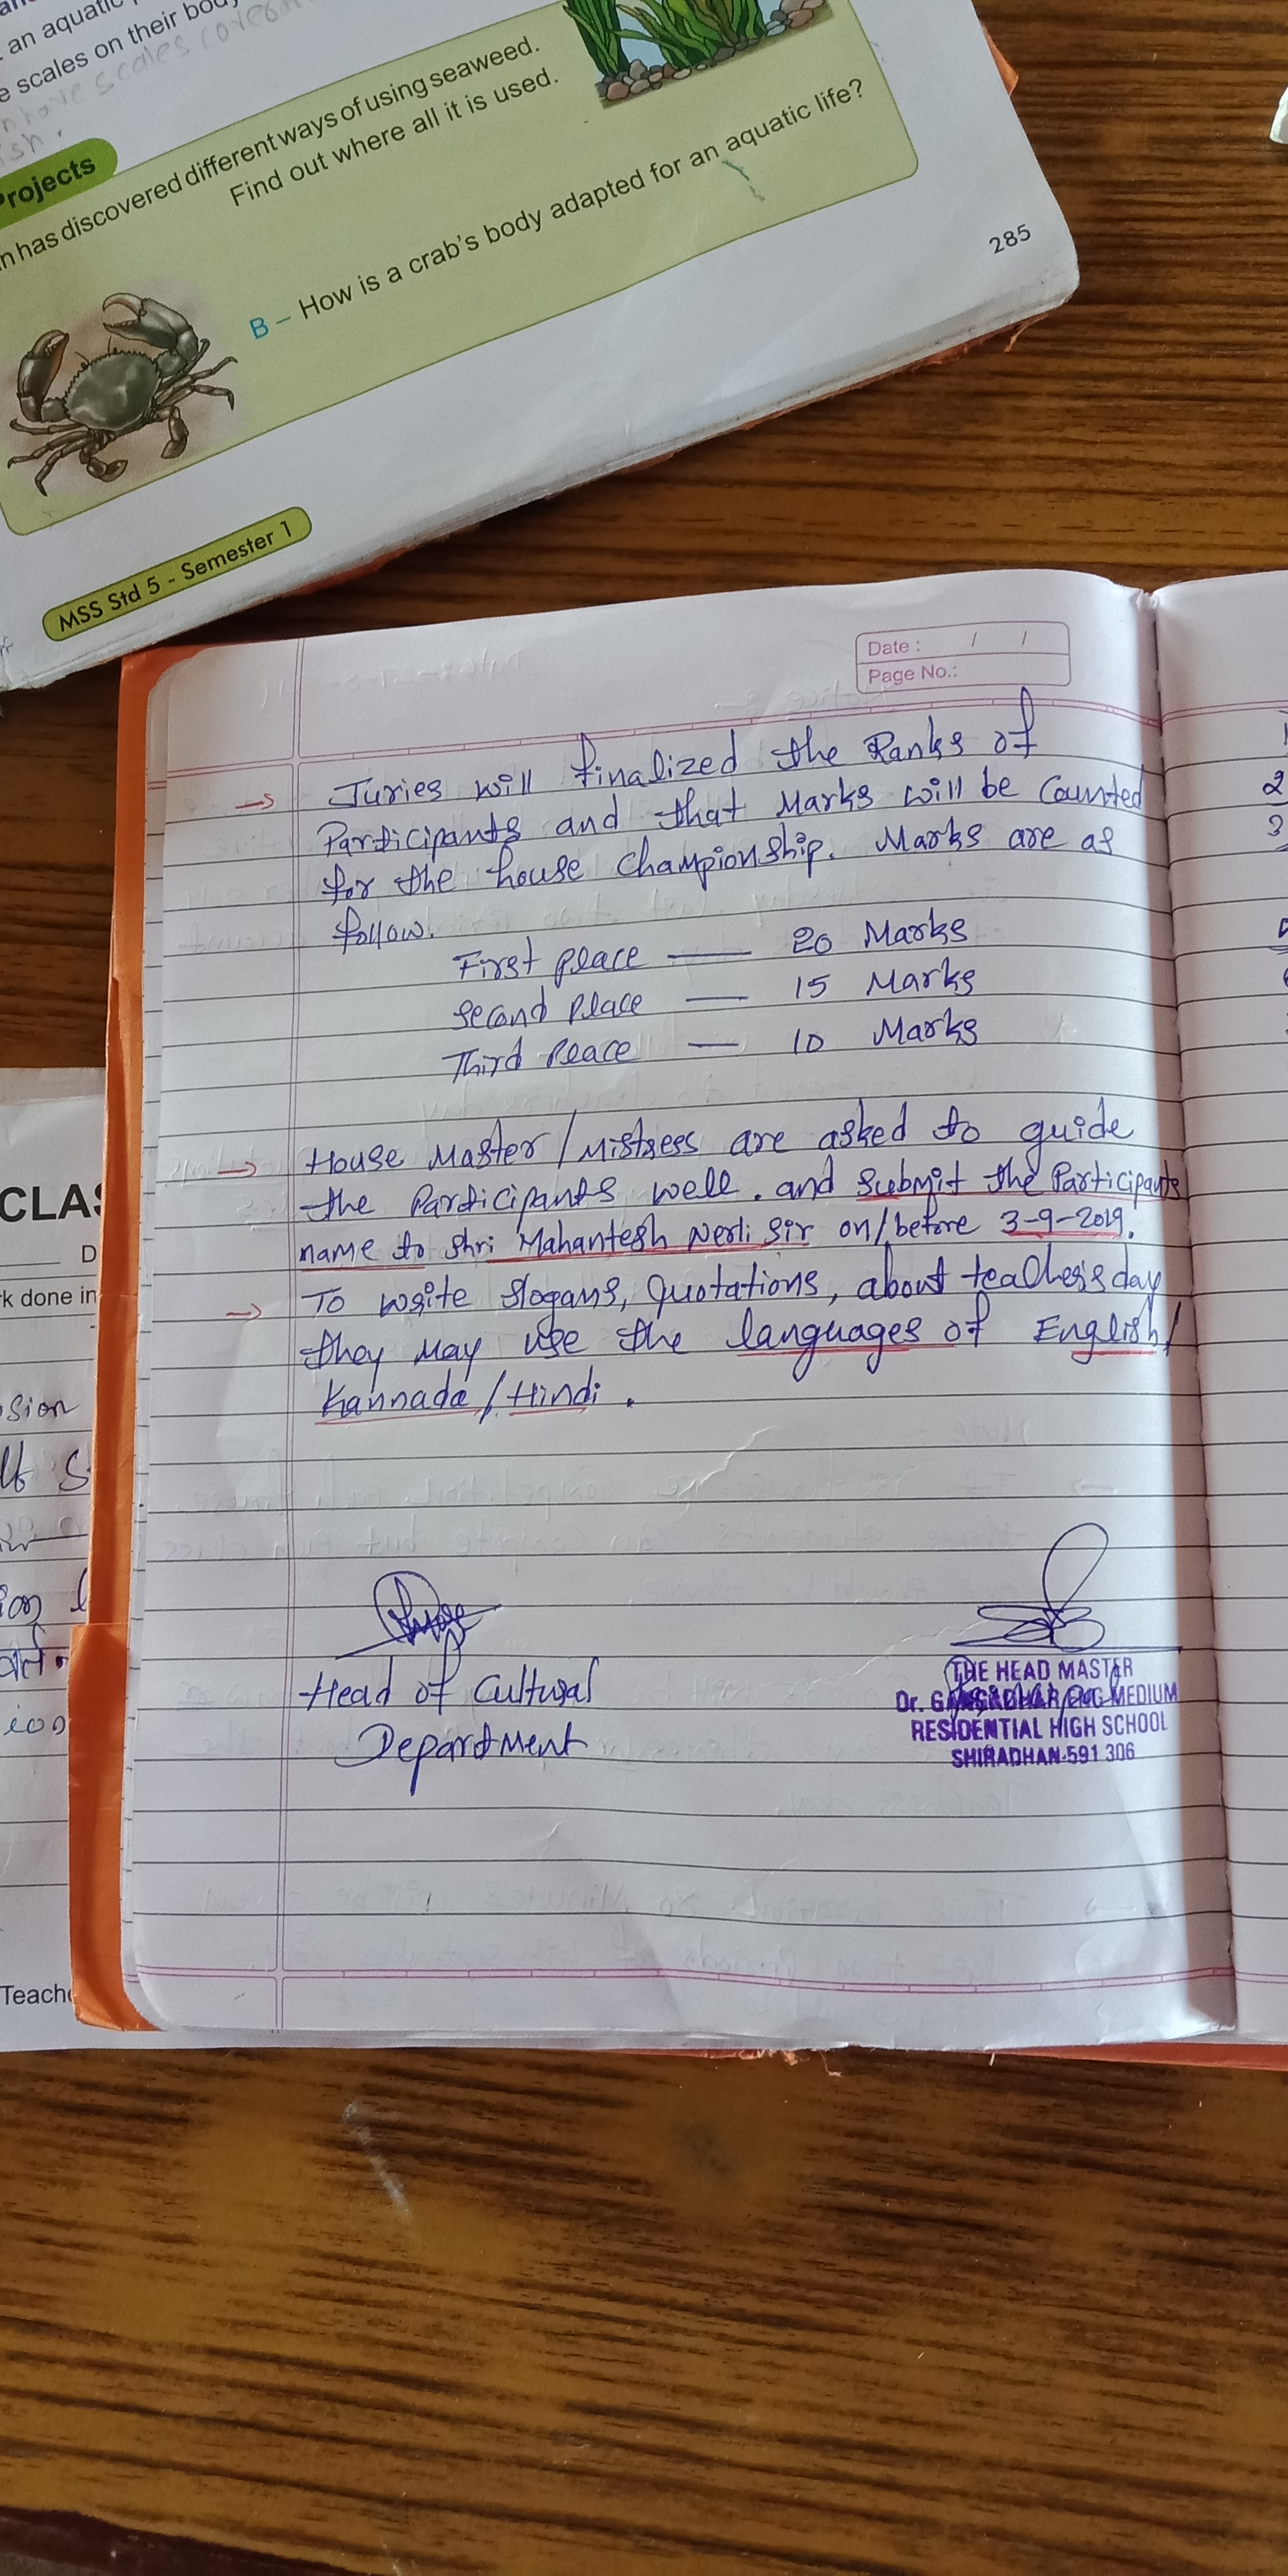 an aquatic
e scales on their body
scales cover
ish.
Projects
n has discovered different ways of using seaweed.
Find out where all it is used.
B – How is a crab's body adapted for an aquatic life?
285
MSS Std 5 - Semester 1
Date : / /
Page No.:
→ Juries will finalized the Ranks of
Participants and that Marks will be Counted
for the house Championship. Marks are as
follow.
First place — 20 Marks
Second Place — 15 Marks
Third Place — 10 Marks
→ House Master/Mistress are asked to guide
the Participants well. and Submit the Participants
name to Shri Mahantesh Nerli Sir on/before 3-9-2019.
→ To write Slogans, Quotations, about teacher's day
they May use the languages of English/
Kannada/Hindi.
Head of Cultural
Department
THE HEAD MASTER
Dr. GANGADHAR ENG MEDIUM
RESIDENTIAL HIGH SCHOOL
SHIRADHAN-591 306
2
3
CLAS
D
k done in
sion
If S
ion
ion
Teach